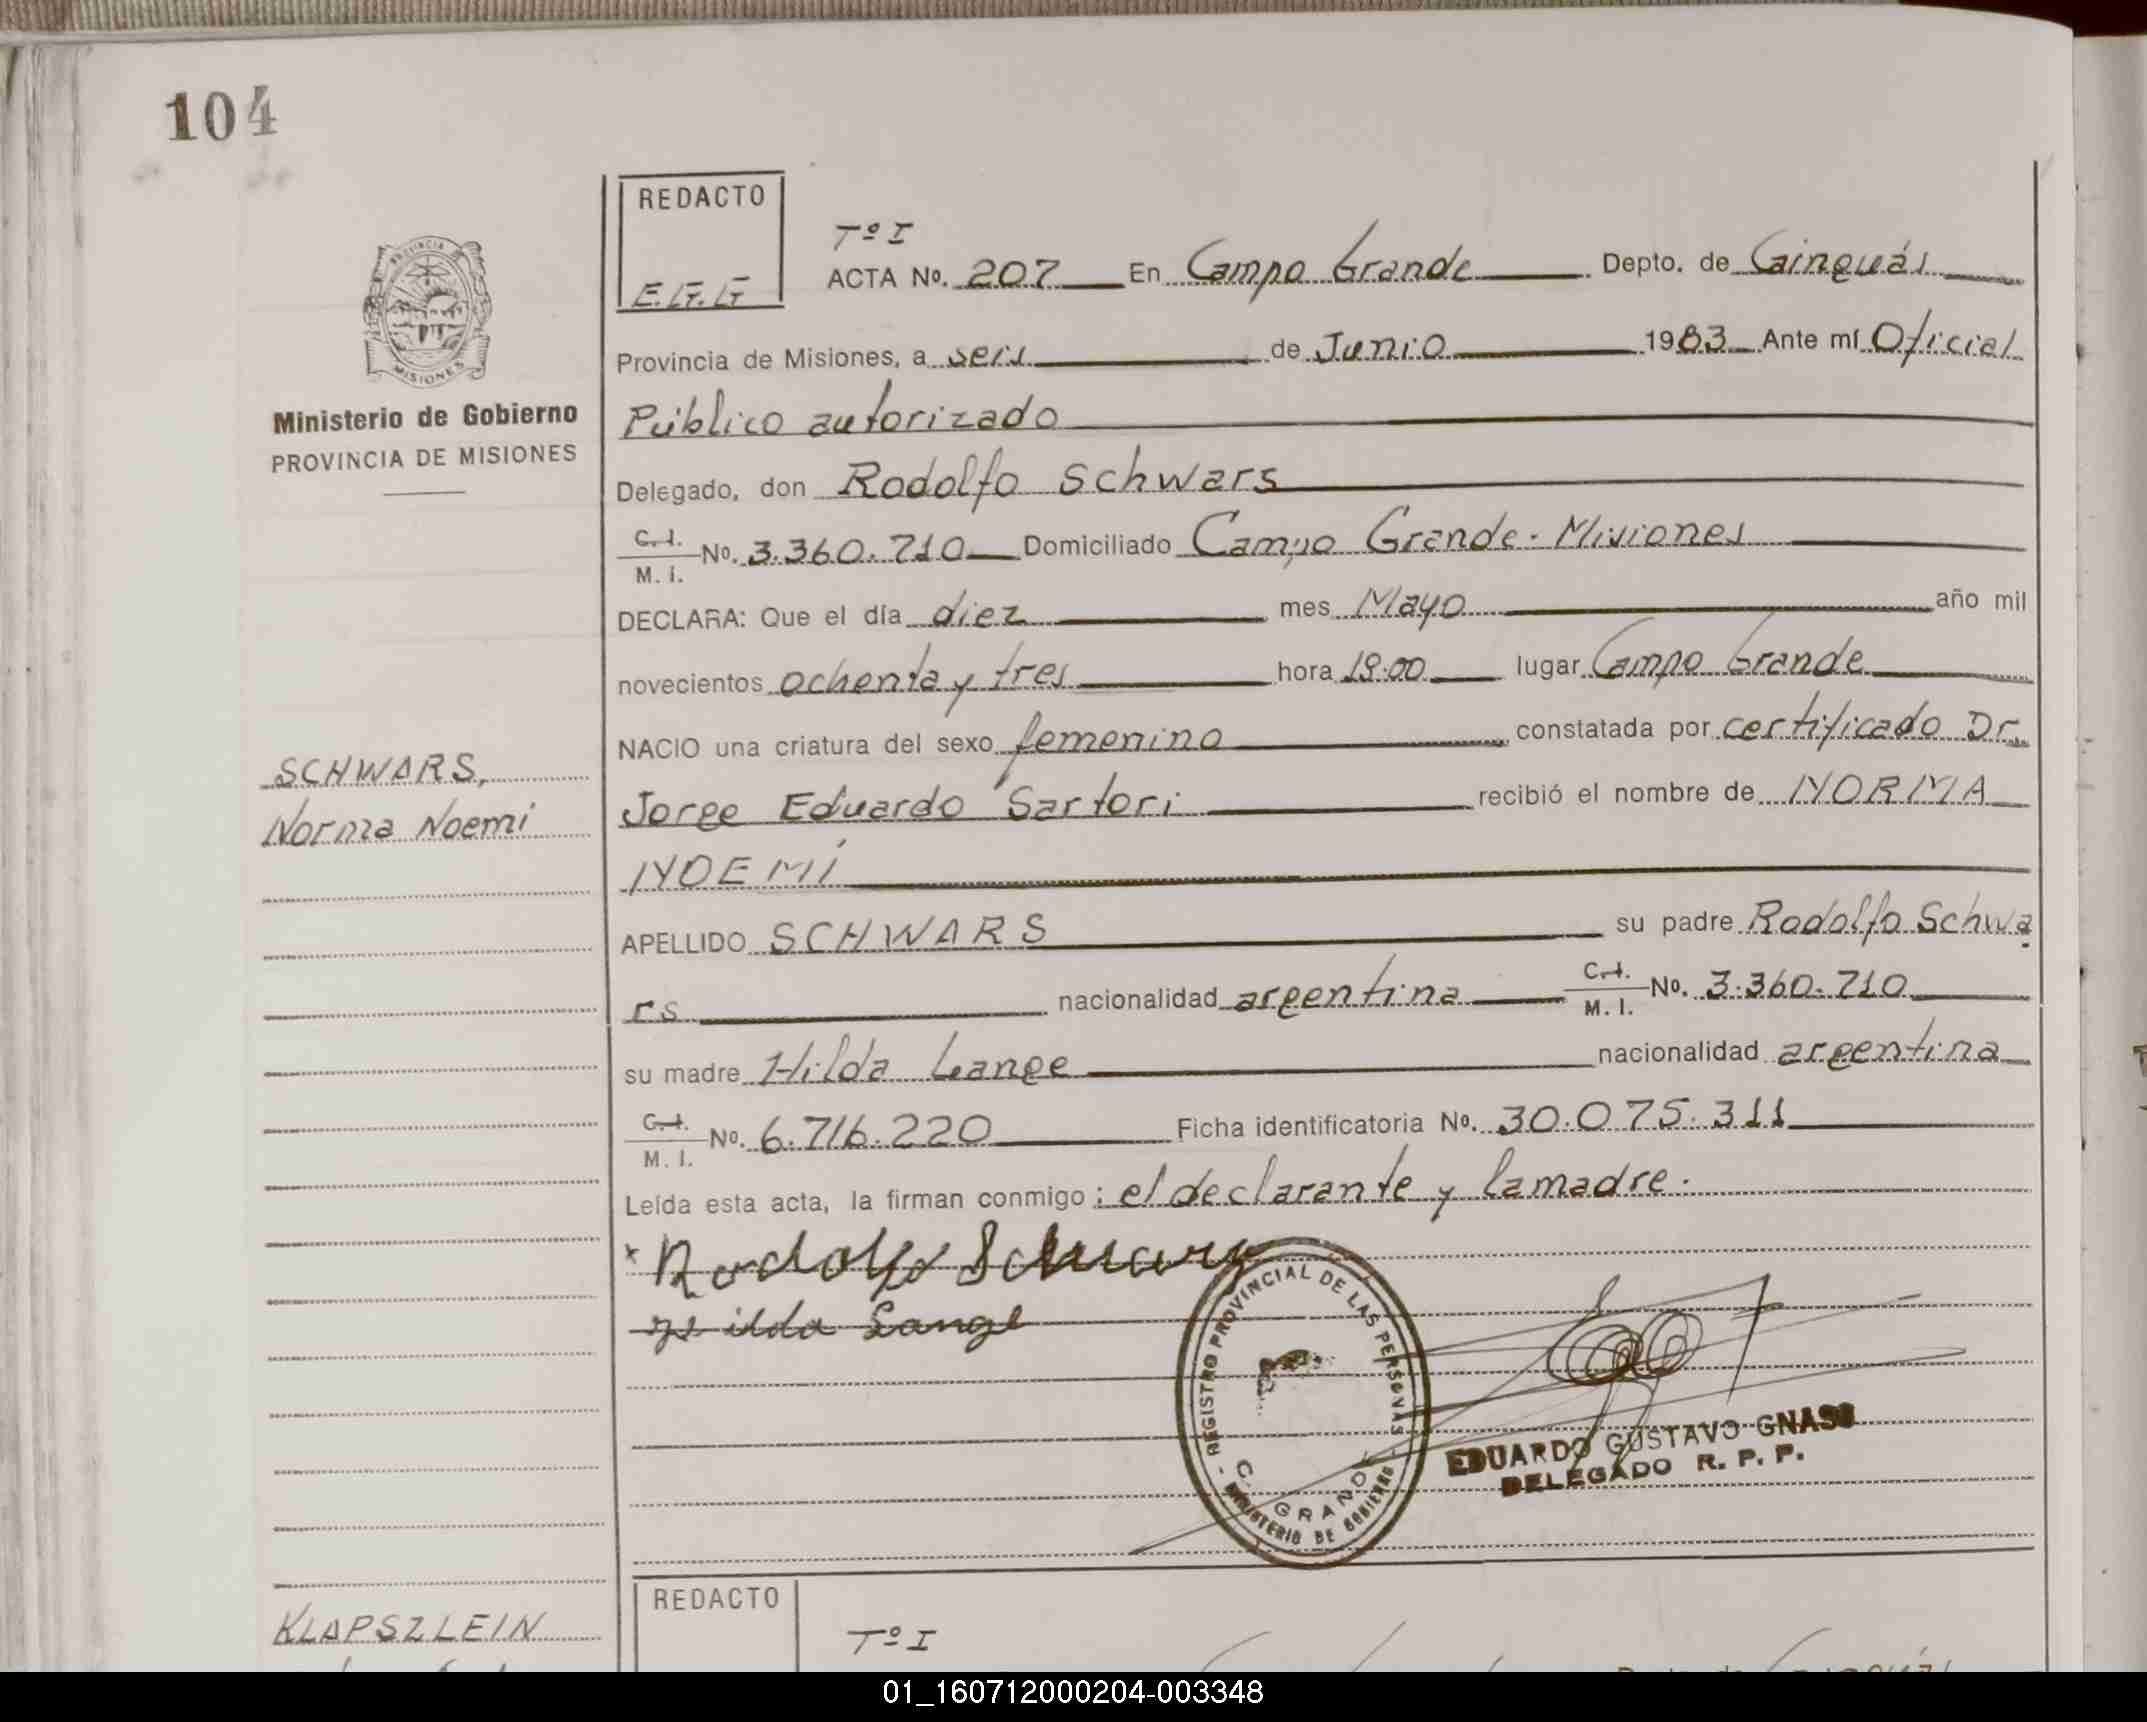 104
REDACTO
E.G.G
PROVINCIA
MISIONES
Ministerio de Gobierno
PROVINCIA DE MISIONES
Tº I
ACTA Nº. 207 En Campo Grande Depto. de Cainguás
Provincia de Misiones, a seis de Junio 1983 Ante mí Oficial
Público autorizado
Delegado, don Rodolfo Schwars
C.I. M.I. Nº. 3.360.710 Domiciliado Campo Grande - Misiones
DECLARA: Que el día diez mes Mayo año mil
novecientos ochenta y tres hora 19.00 lugar Campo Grande
NACIO una criatura del sexo femenino constatada por certificado Dr.
SCHWARS,
Norma Noemi
Jorge Eduardo Sartori recibió el nombre de NORMA
NOEMÍ
APELLIDO SCHWARS su padre Rodolfo Schwa
rs nacionalidad argentina C.I. M.I. Nº. 3.360.710
su madre Hilda Lange nacionalidad argentina
C.I. M.I. Nº. 6.716.220 Ficha identificatoria Nº. 30.075.311
Leída esta acta, la firman conmigo: el declarante y la madre.
x Rodolfo Schwarz
Hilda Lange
- REGISTRO PROVINCIAL DE LAS PERSONAS -
C. GRANDE
MINISTERIO DE GOBIERNO
EDUARDO GUSTAVO GNASS
DELEGADO R. P. P.
REDACTO
Tº I
KLAPSZLEIN
01_160712000204-003348